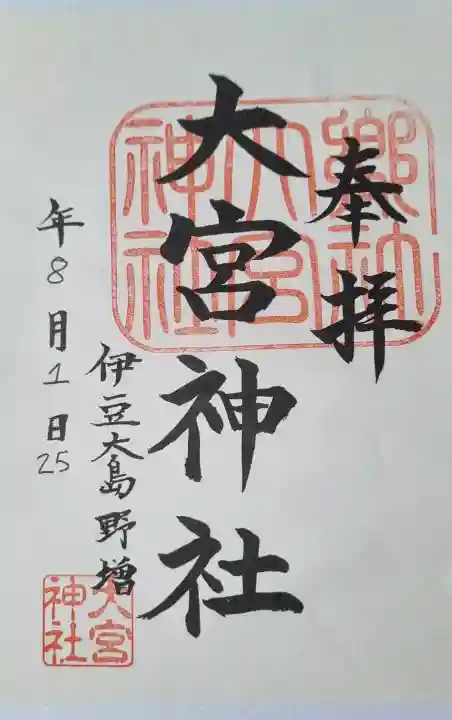 奉拝
郷社
大宮
神社
大宮神社
伊豆大島野増
大宮
神社
年8月1日
25